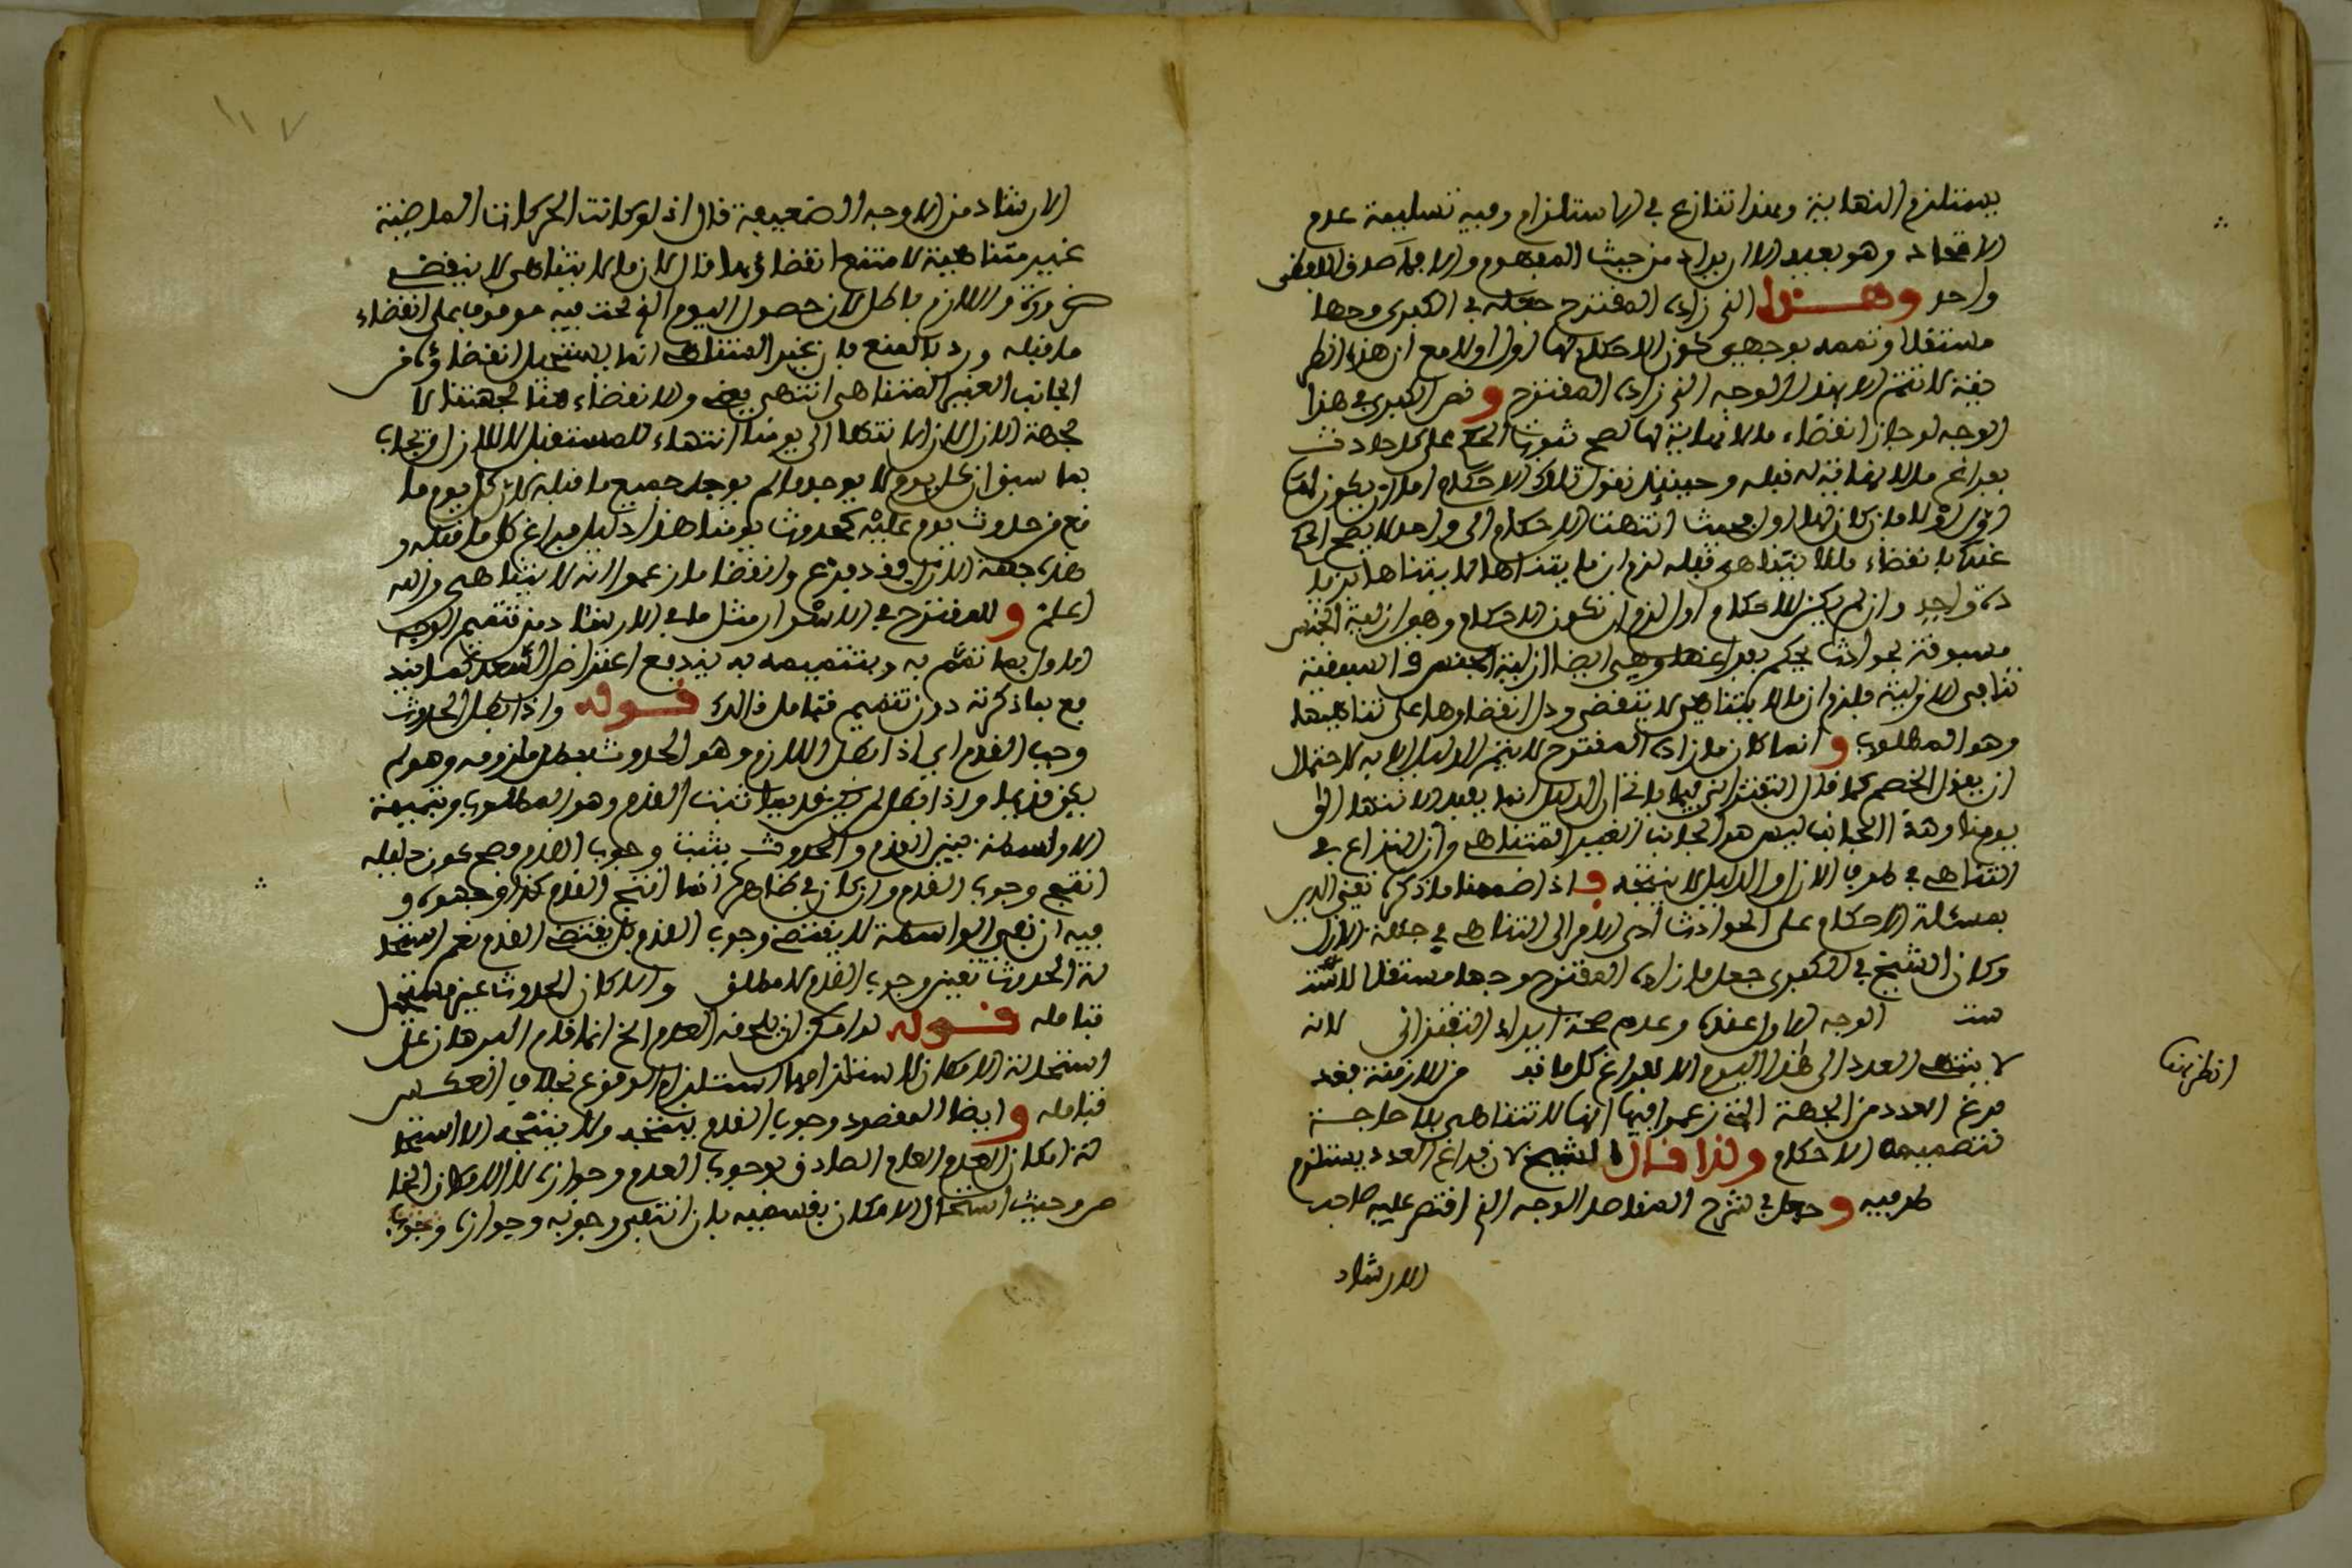 يستلزم النهاية وهذا تنازع في الاستلزام وفيه تسليمة عدم
الاتحاد وهو بعيد الا ان يراد من حيث المفهوم والا فما صدق اللفظين
واحد وهذا الذي زاده المقترح جعله في الكبرى وجها
مستقلا وتممه بوجهين كون الاحكام لها اول اولا مع ان هذه الطر
يقة لا تتم الا بهذا الوجه الذي زاده المقترح ونص الكبرى في هذا
الوجه لو جاز انقضاء ما لا نهاية لها لصح ثبوت الحكم على كل حادث
بفراغ ما لا نهاية له قبله وحينئذ نقول تلك الاحكام اما ان يكون لها
اول او لا فان كان لها اول بحيث انتهت الاحكام الى واحد لا يصح الحكم
عنده بانقضاء ما لا يتناهى قبله لزم ان ما يتناهى لا يتناهى بزيا
دة واحد وان لم يكن للاحكام اول لزم ان تكون الاحكام وهي ازلية الجنس
مسبوقة بحوادث يحكم بفراغها وهي ايضا ازلية الجنس والسبقية
تنافي الازلية فلزم ان ما لا يتناهى لا ينقضي ودل انقضاؤها على تناهيها
وهو المطلوب وانما كان ما زاده المقترح لا يتم الدليل الا به لاحتمال
ان يقول الخصم كما قال التفتزاني فيما يأتي ان الدليل انما يفيد الانتهاء الى
يومنا وهذا الجانب ليس هو الجانب الغير المتناهي وان النزاع في
التناهي في طرف الازل والدليل لا ينتجه فاذا ضممنا ما ذكره تعني الدين
بمسئلة الاحكام على الحوادث ادى الامر الى التناهي في جهة الازل
وكان الشيخ في الكبرى جعل ما زاده المقترح وجها مستقلا
الوجه الاول عنده وعدم صحة ايراد التفتزاني لانه
لا ينتهي العدد الى هذا اليوم الا بفراغ كل ما قبله من الازمنة فقد
فرغ العدد من الجهة التي زعموا فيها انها لا تتناهى بلا حاجة
تتميمه الاحكام ولذا قال الشيخ لان فراغ العدد يستلزم
طرفيه وجعل في شرح المقاصد الوجه الذي اقتصر عليه صاحب
الارشاد
انظر هنا
١١٧
الارشاد من الاوجه الضعيفة قال اذ لو كانت الحركات الماضية
غير متناهية لامتنع انقضاؤها قال لان ما لا يتناهى لا ينقضي
ضرورة واللازم باطل لان حصول اليوم الذي نحن فيه موقوف على انقضاء
ما قبله ورد بالمنع فان غير المتناهي انما يستحيل انقضاؤه من
الجانب الغير المتناهي انتهى يعني والانقضاء هنا لجهتنا لا
لجهة الازل لان انتهاءها الى يومنا انتهاء للمستقبل لا للازل ويجاب
بما سبق ان كل يوم لا يوجد ما لم يوجد جميع ما قبله لان كل يوم ما
نع من حدوث يوم عليه فحدوث يومنا هذا دليل فراغ كل ما قبله و
هذه جهة الازل فقد فرغ وانقضا ما زعموا انه لا يتناهى والله
اعلم وللمقترح في الاسرار مثل ما في الارشاد من تتميم الوجه
الاول بما تمم به وبتتميمه به يندفع اعتراض السعد كما يند
فع بما ذكرته دون تتميم فتامل ذلك قوله واذا بطل الحدوث
وجب القدم اي اذا بطل اللازم وهو الحدوث بطل ملزومه وهو لم
يكن قديما واذا بطل لم يكن قديما ثبت القدم وهو المطلوب وبتبيين
الا واسطة بين القدم والحدوث يثبت وجوب القدم وصح كون دليله
انتج وجوب القدم وان كان في ظاهره انما انتج القدم كذا وجهوه و
فيه ان نفي الواسطة لا يقتضي وجوب القدم بل يقتضي القدم نعم استحا
لة الحدوث تعين وجوب القدم لا مطلق والا كان الحدوث غير مستحيل
فتامله قوله لو امكن ان يلحقه العدم الخ انما قدم البرهان على
استحالة الامكان لاستلزامها استلزام الوقوع بخلاف العكس
فتامله وايضا المقصود وجوب القدم ينتجه ولا ينتجه الا استحا
لة امكان العدم العام الصادق بوجوب العدم وجوازه لا الامكان الخا
ص وحيث استحال الامكان بقسميه بان انتفى وجوبه وجوازه وجوب